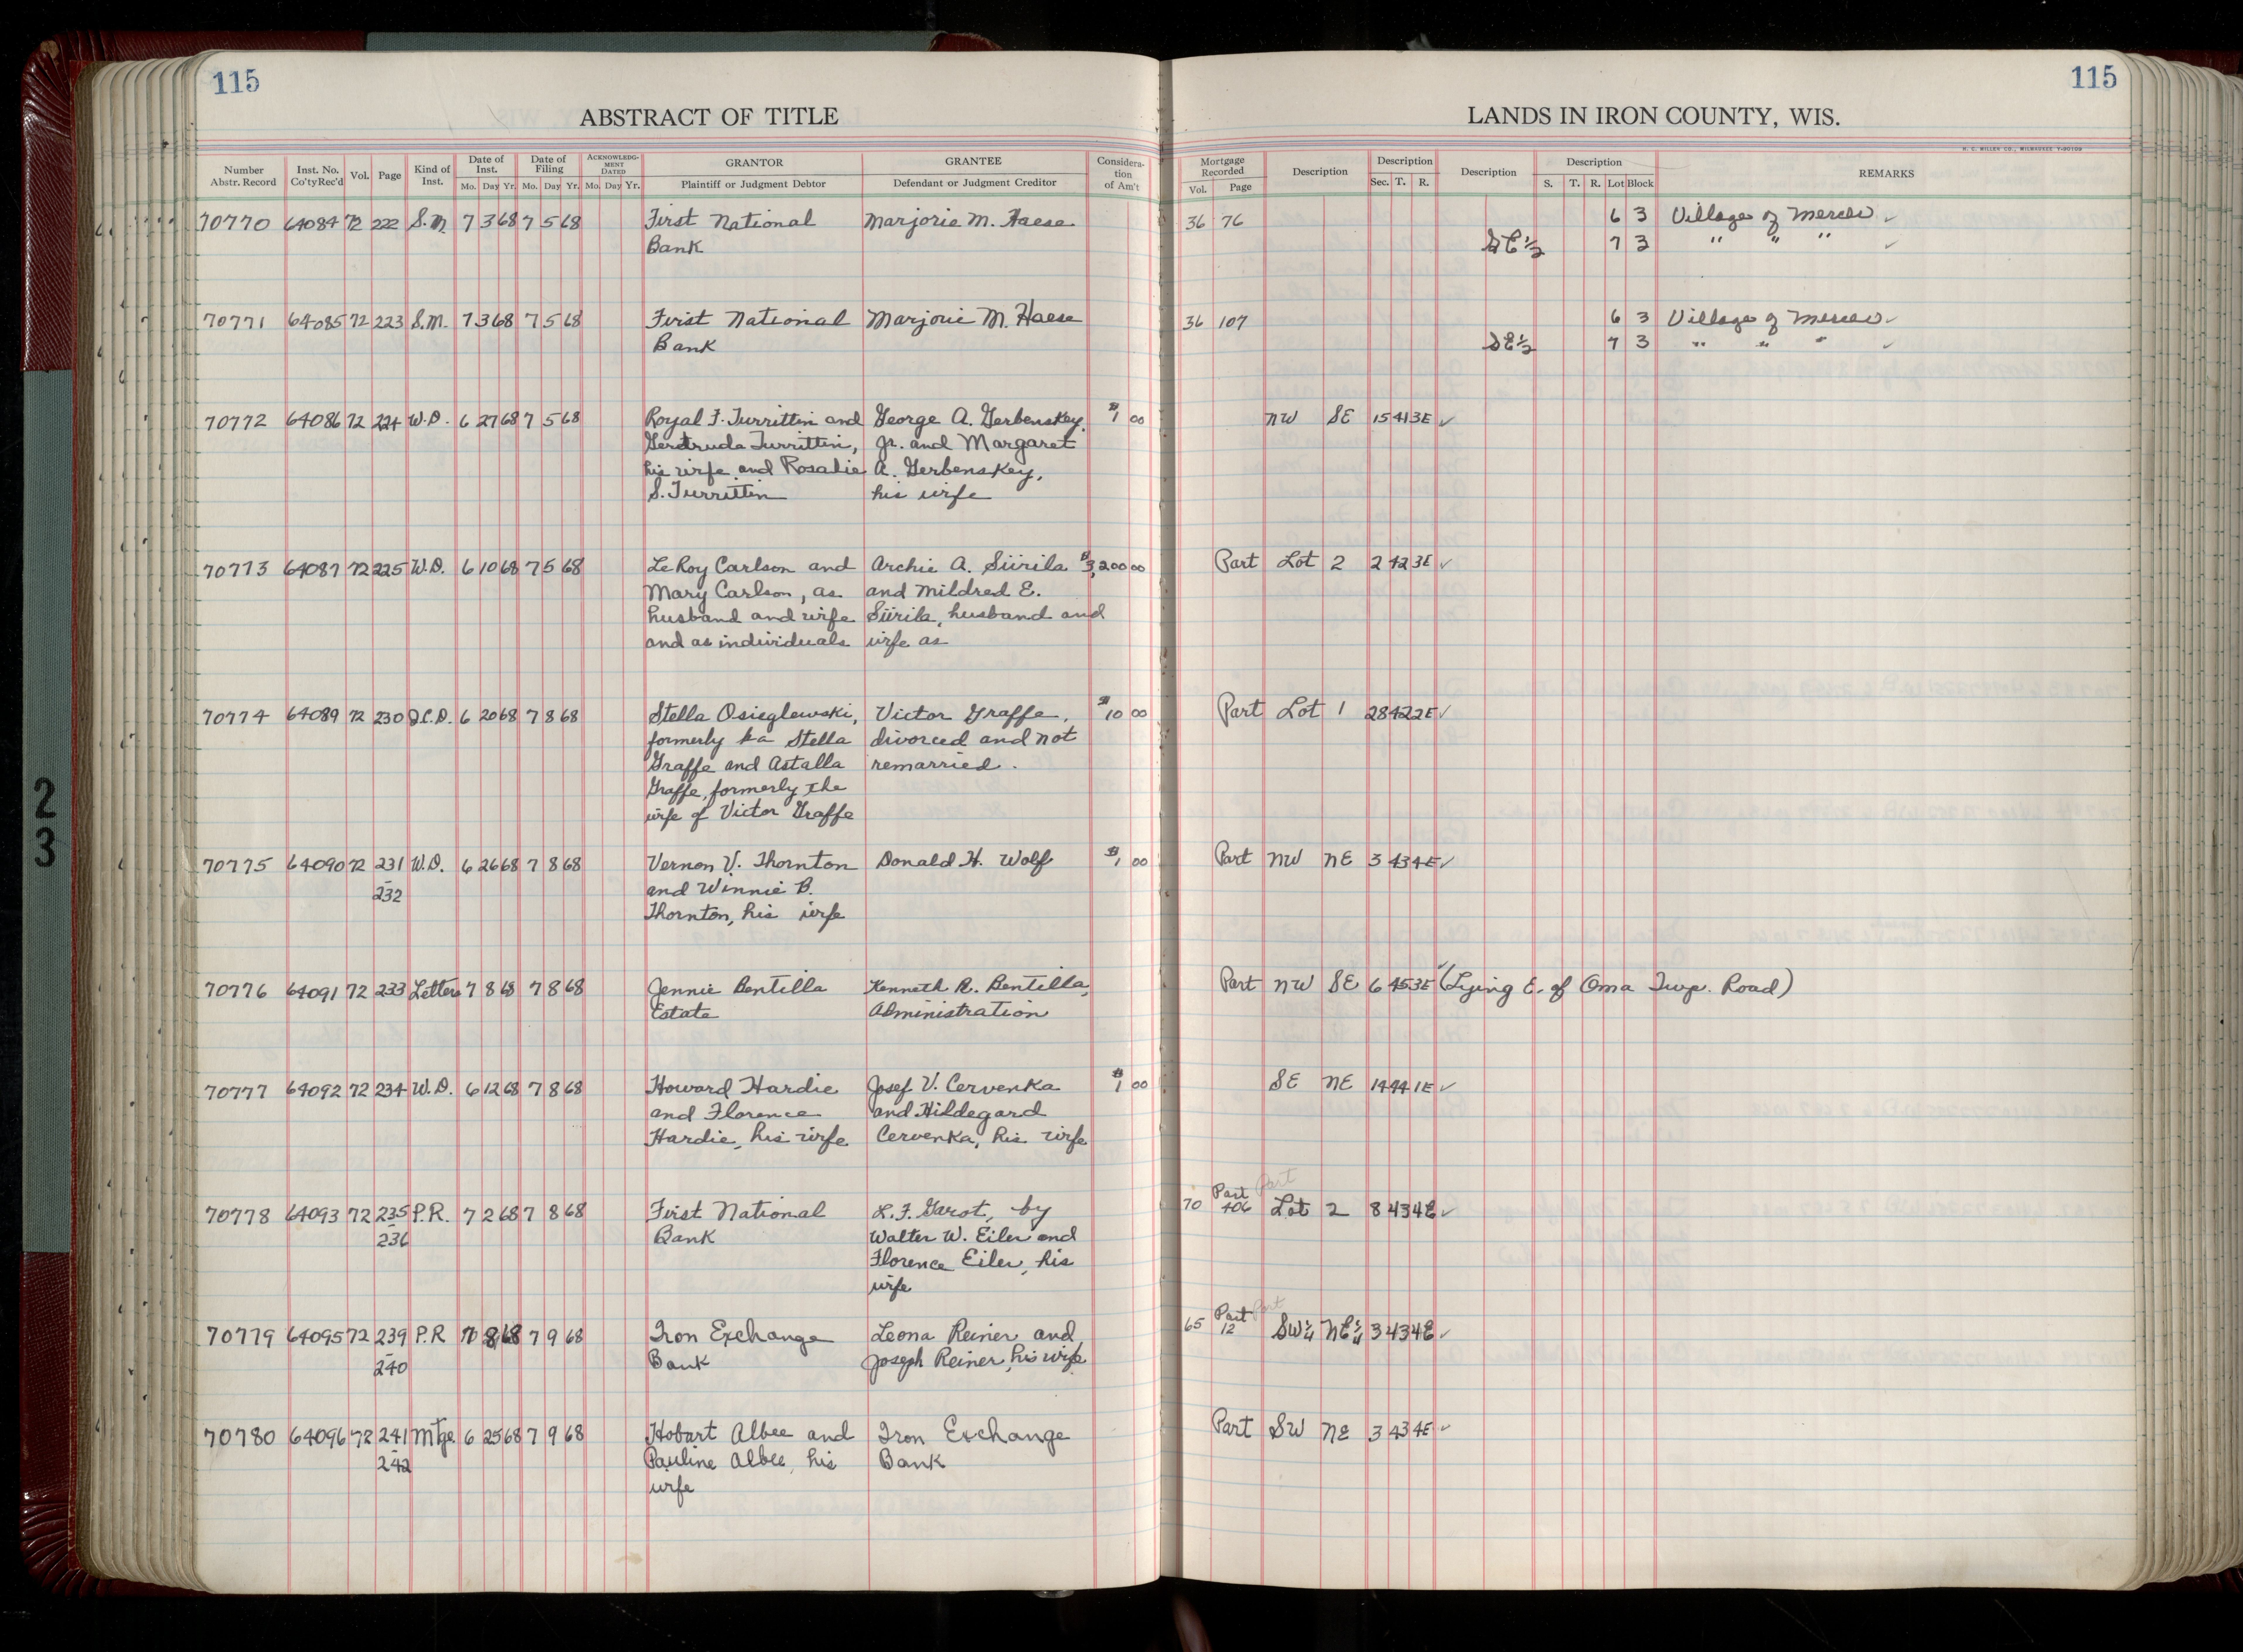 115
115
ABSTRACT OF TITLE
LANDS IN IRON COUNTY, WIS.
H. C. MILLER CO., MILWAUKEE Y-90159
Number Abstr. Record Inst. No. Co'ty Rec'd Vol. Page Kind of Inst. Date of Inst. Mo. Day Yr. Date of Filing Mo. Day Yr. ACKNOWLEDGMENT DATED Mo. Day Yr. GRANTOR Plaintiff or Judgment Debtor GRANTEE Defendant or Judgment Creditor Consideration of Am't
Mortgage Recorded Vol. Page Description Description Sec. T. R. Description Description S. T. R. Lot Block REMARKS
70770 64084 72 222 S.M. 7 3 68 7 5 68 First National Marjorie M. Haese 36 76 6 3 Village of Mercer ✓
Bank 7 3 " " " ✓
70771 64085 72 223 S.M. 7 3 68 7 5 68 First National Marjorie M. Haese 36 107 6 3 Village of Mercer ✓
Bank SE½ 7 3 " " " ✓
70772 64086 72 224 W.D. 6 27 68 7 5 68 Royal F. Turrittin and George A. Gerbenskey, $1 00 NW SE 15 41 3E ✓
Gertruda Turrittin, Jr. and Margaret
his wife and Rosalie A. Gerbenskey,
S. Turrittin his wife
70773 64087 72 225 W.D. 6 10 68 7 5 68 LeRoy Carlson and Archie A. Siirila $3,200 00 Part Lot 2 2 42 3E ✓
Mary Carlson, as and Mildred E.
husband and wife Siirila, husband and
and as individuals wife as
70774 64089 72 230 Q.C.D. 6 20 68 7 8 68 Stella Osieglewski, Victor Graffe, $10 00 Part Lot 1 28 42 2E ✓
formerly ka Stella divorced and not
Graffe and Astalla remarried.
Graffe, formerly the
wife of Victor Graffe
70775 64090 72 231 W.D. 6 26 68 7 8 68 Vernon V. Thornton Donald H. Wolf $1 00 Part NW NE 3 43 4E ✓
-232 and Winnie B.
Thornton, his wife
70776 64091 72 233 Letters 7 8 68 7 8 68 Jennie Bentilla Kenneth R. Bentilla, Part NW SE 6 45 3E ✓ (Lying E. of Oma Twp. Road)
Estate Administration
70777 64092 72 234 W.D. 6 12 68 7 8 68 Howard Hardie Josef V. Cervenka $1 00 SE NE 14 44 1E ✓
and Florence and Hildegard
Hardie, his wife Cervenka, his wife
Part Part
70778 64093 72 235 P.R. 7 2 68 7 8 68 First National L. F. Garot, by 70 406 Lot 2 8 43 4E ✓
-236 Bank Walter W. Eiler and
Florence Eiler, his
wife
Part Part
70779 64095 72 239 P.R 7 8 68 7 9 68 Iron Exchange Leona Reiner and 65 12 SW¼ NE¼ 3 43 4E ✓
-240 Bank Joseph Reiner, his wife
70780 64096 72 241 Mtge. 6 25 68 7 9 68 Hobart Albee and Iron Exchange Part SW NE 3 43 4E ✓
-242 Pauline Albee, his Bank
wife
2
3